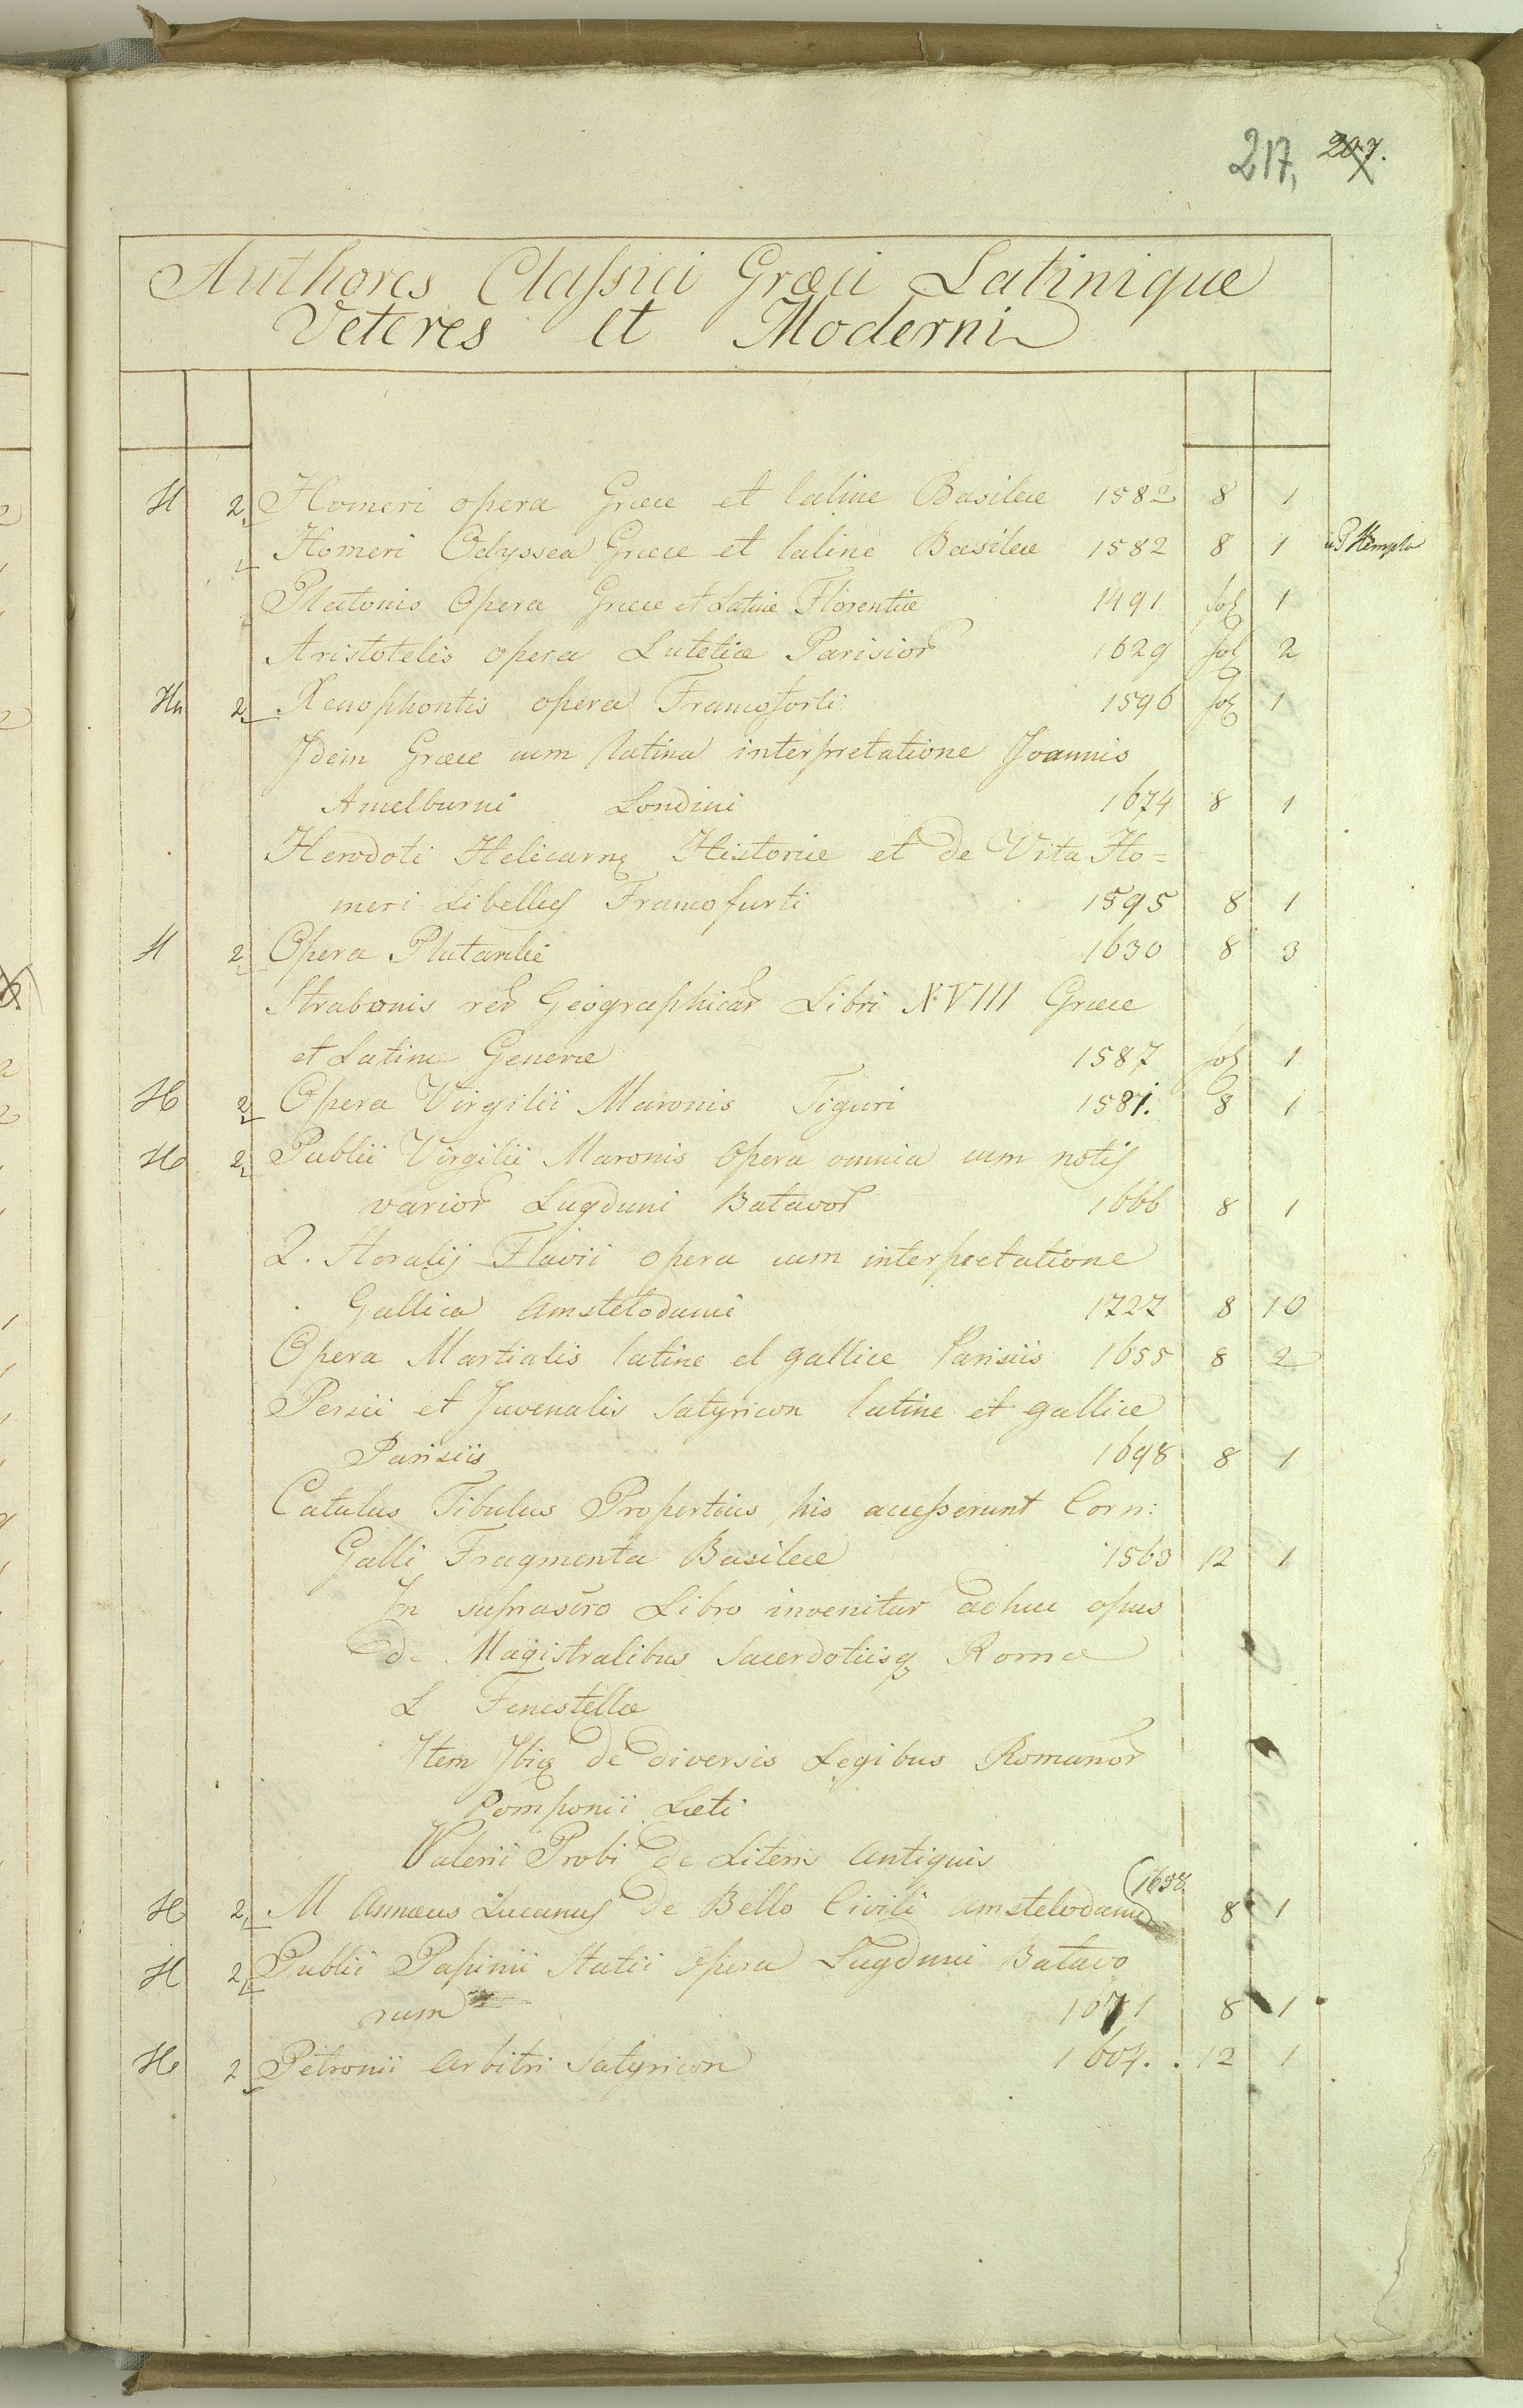 217, 207.
Authores Classici Græci Latinique
Veteres et Moderni
H 2 Homeri opera Græce et latine Basileæ 1582 8 1
1 Homeri Odyssea Græce et latine Basileæ 1582 8 1
Platonis Opera Græce et Latine Florentiæ 1491 fol 1
Aristotelis opera Lutetiæ Parisior 1629 fol 2
Hn 2 Xenophontis opera Francoforti 1596 fol 1
Idem Græce cum latina interpretatione Joannis
Amelburni Londini 1674 8 1
Herodoti Helicarnq Historiæ et de Vita Ho=
meri Libellus Francofurti 1595 8 1
H 2 Opera Plutarchi 1630 8 3
Strabonis rer Geographicar Libri XVIII Græce
et Latine Genevæ 1587 fol 1
H 2 Opera Virgilii Maronis Tiguri 1581. 8 1
H 2 Publii Virgilii Maronis Opera omnia cum notis
varior Lugduni Batavor 1666 8 1
Q. Horatij Flavii opera cum interpretatione
Gallica Amstelodami 1727 8 10
Opera Martialis latine et gallice Parisiis 1655 8 2
Persii et Juvenalis Satyricon latine et gallice
Parisiis 1698 8 1
Catulus Tibulus Propertius, his accesserunt Corn:
Galli Fragmenta Basileæ 1563 12 1
In suprascro Libro invenitur adhuc opus
de Magistralibus Sacerdotiisq Romæ
L Fenestellæ
Item Ibiq de diversis Legibus Romanor
Pomponii Læti
Valerii Probi de Literis Antiquis
H 2 M Annæus Lucanus de Bello Civili Amstelodami (1658 8 1
H 2 Publii Papinii Statii Opera Lugduni Batavo
rum 1671 8 1
H 2 Petronii Arbitri Satyricon 1604. . 12 1